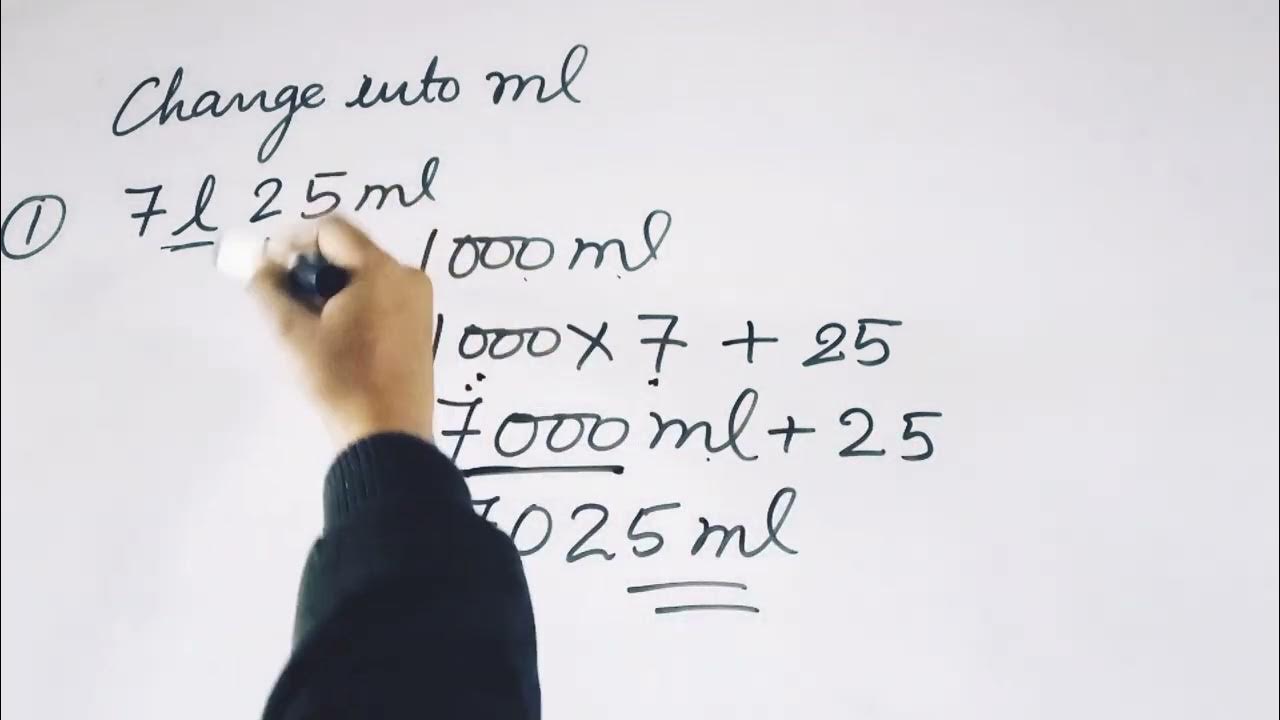 Change into ml
① 7l 25ml
1000ml
1000 × 7 + 25
7000ml + 25
7025ml